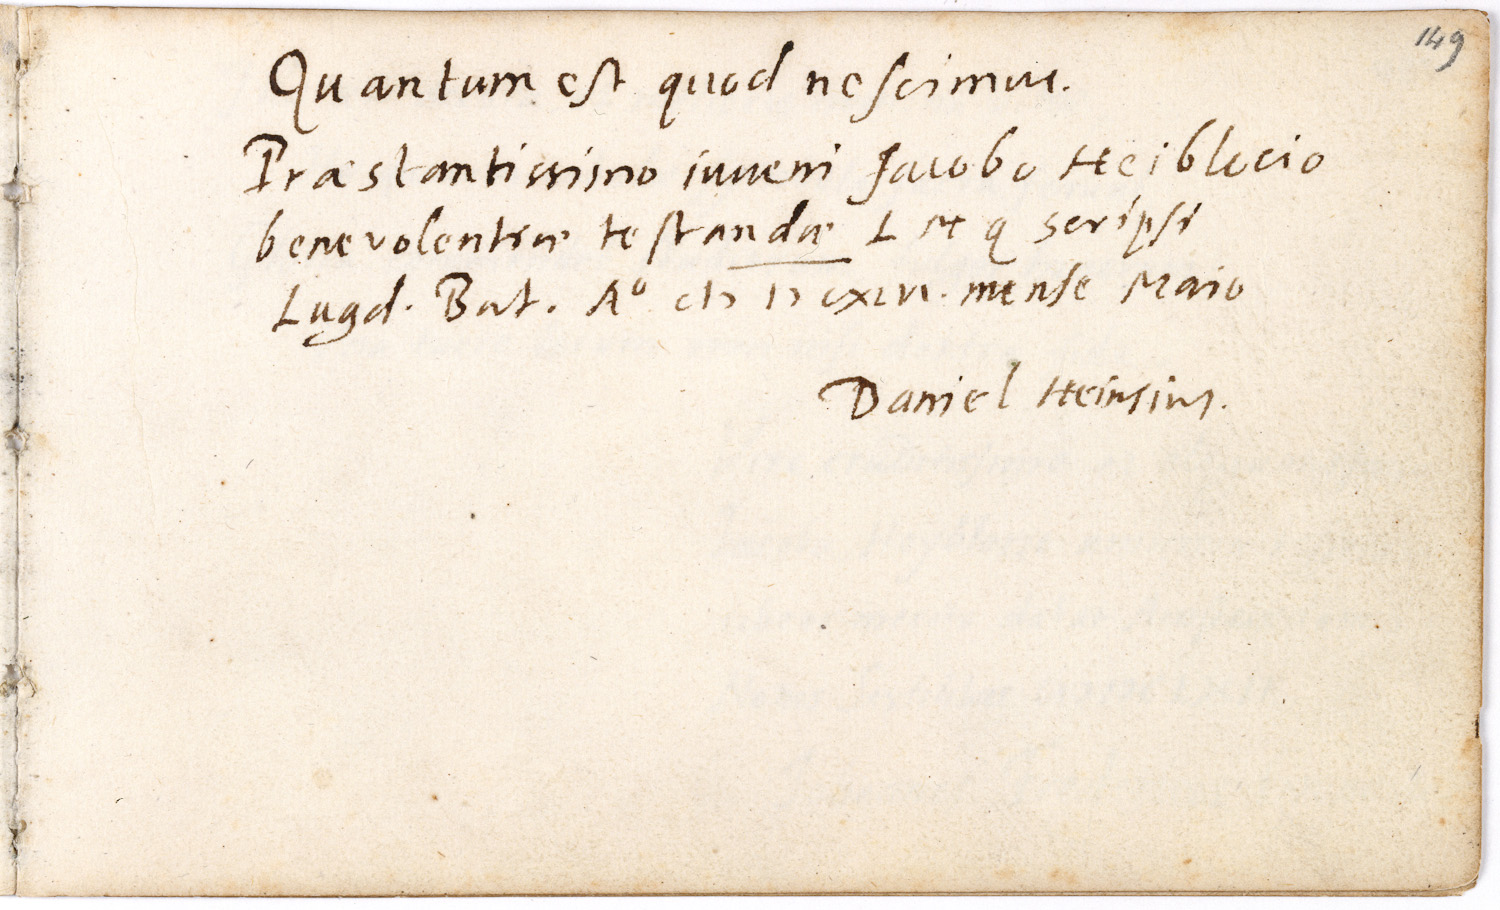 149
Quantum est quod nescimus.
Præstantissimo iuveni Jacobo Heiblocio
benevolentiæ testandæ L M q scripsi
Lugd. Bat. Aº mense Maio
Daniel Heinsius.